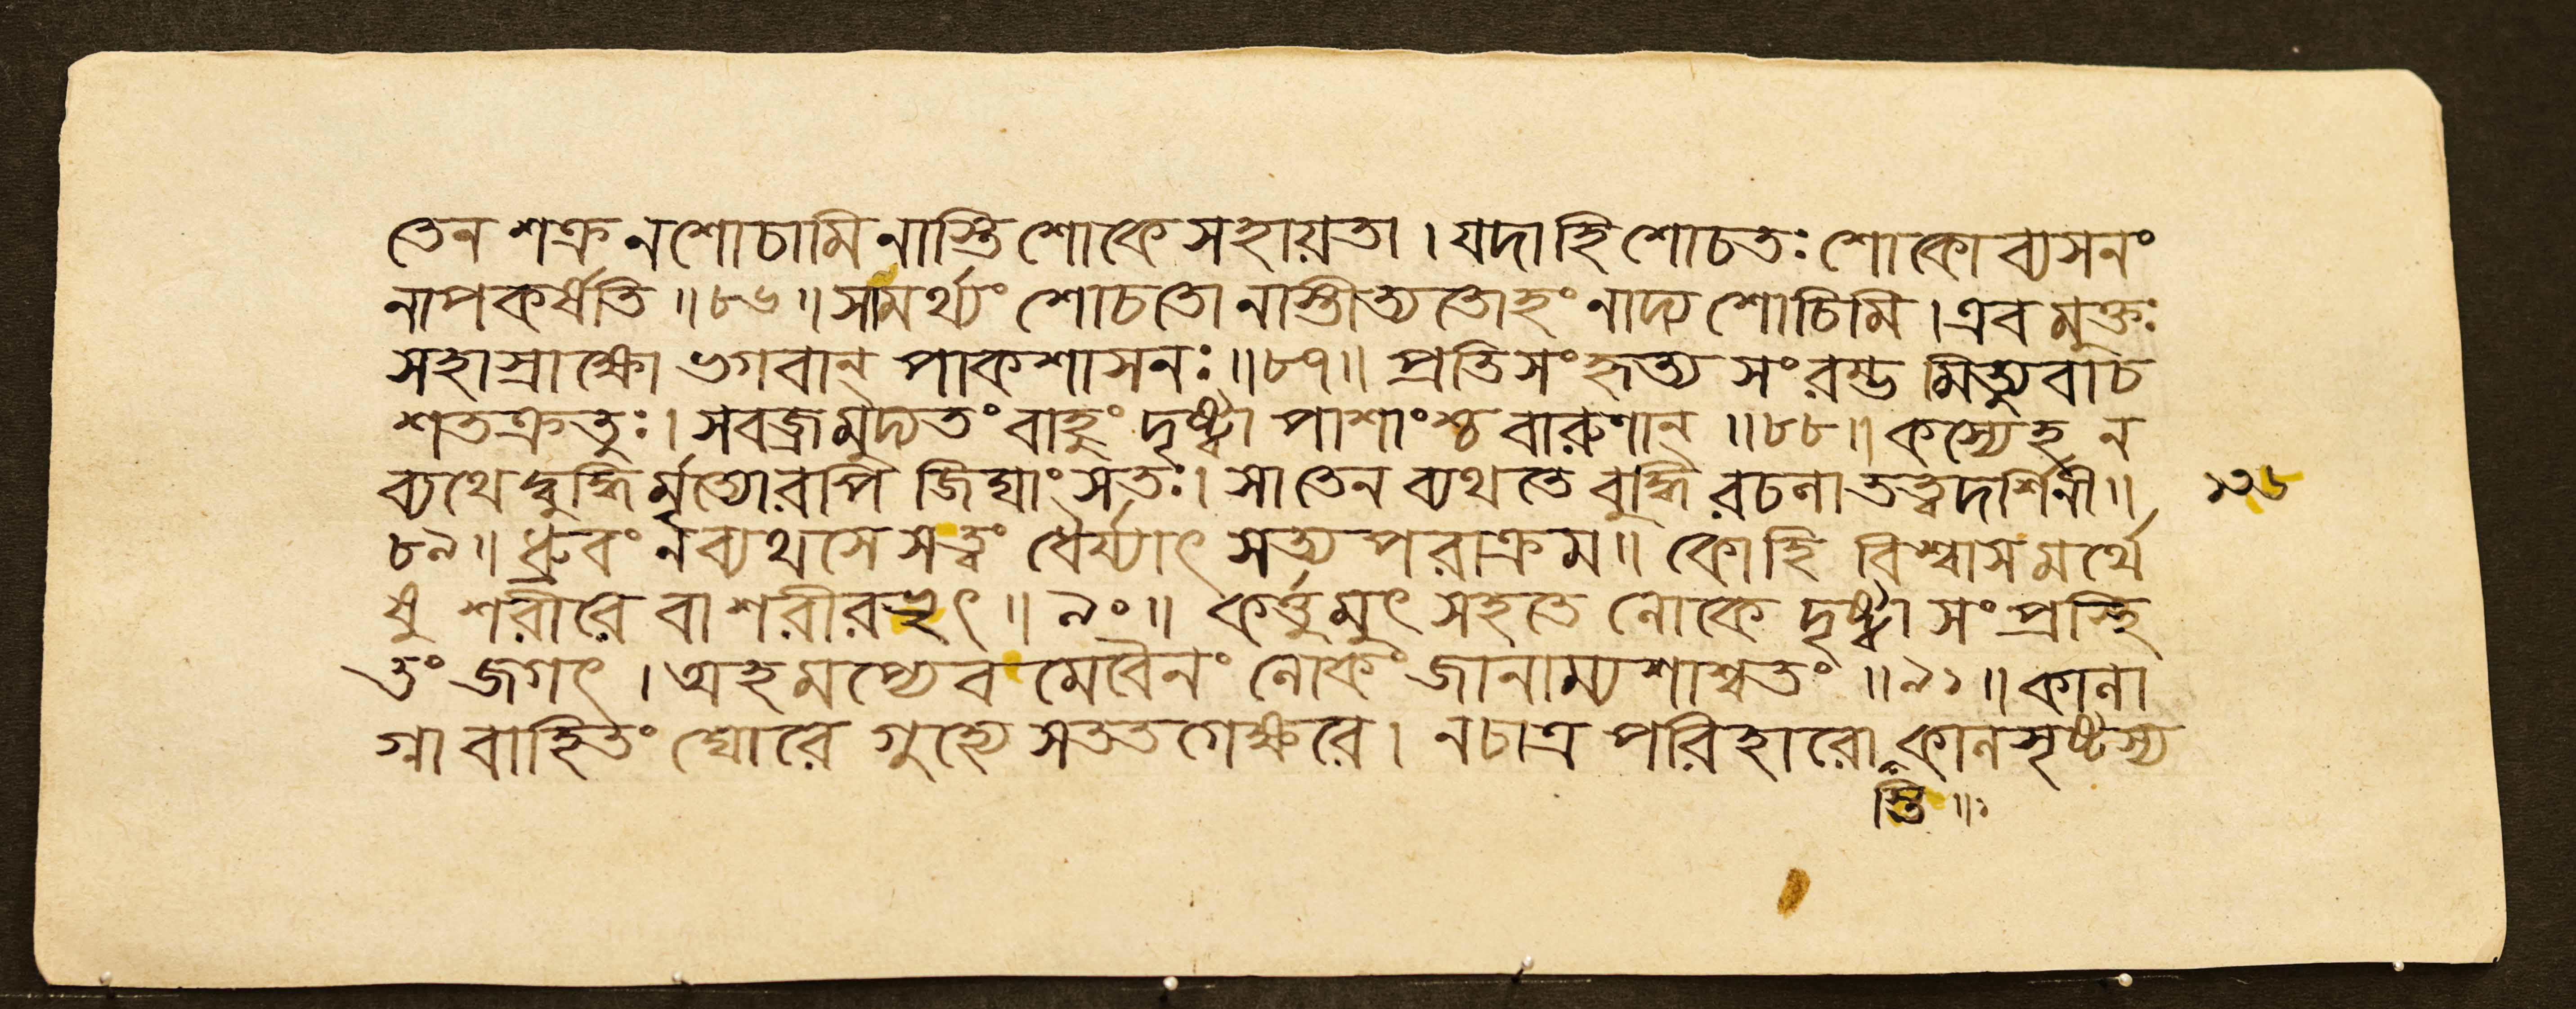 তেন শক্র ন শোচামি নাস্তি শোকে সহায়তা । যদা হি শোচতঃ শোকো ব্যসনং
নাপকর্ষতি ॥ ৮৬ ॥ সামর্থ্যং শোচতো নাস্তীত্যতোহং নাদ্য শোচিমি । এবমুক্তঃ
সহাস্রাক্ষো ভগবান্ পাকশাসনঃ ॥ ৮৭ ॥ প্রতিসংহৃত্য সংরম্ভ মিত্যুবাচ
শতক্রতুঃ । সবজ্রমুদ্যতং বাহুং দৃষ্ট্বা পাশাংশ্চ বারুণান্ ॥ ৮৮ ॥ কস্যেহ ন
ব্যথেদ্বুদ্ধির্মৃত্যোরপি জিঘাংসতঃ । সা তেন ব্যথতে বুদ্ধিরচলা তত্ত্বদর্শিনী ॥
১৩৮
৮৯ ॥ ধ্রুবং ন ব্যথসে সত্ত্বং ধৈর্য্যাৎ সত্যপরাক্রম ॥ কো হি বিশ্বাসমর্থে
ষু শরীরে বা শরীরভৃৎ ॥ ৯০ ॥ কর্ত্তুমুৎসহতে লোকে দৃষ্ট্বা সংপ্রস্থি
তং জগৎ । অহমপ্যেবমেবৈনং লোকং জানাম্যশাশ্বতং ॥ ৯১ ॥ কালা
গ্নাবাহিতং ঘোরে গুহ্যে সততগেক্ষরে । ন চাত্র পরিহারো কালসৃষ্টস্য
স্তি ॥ ১